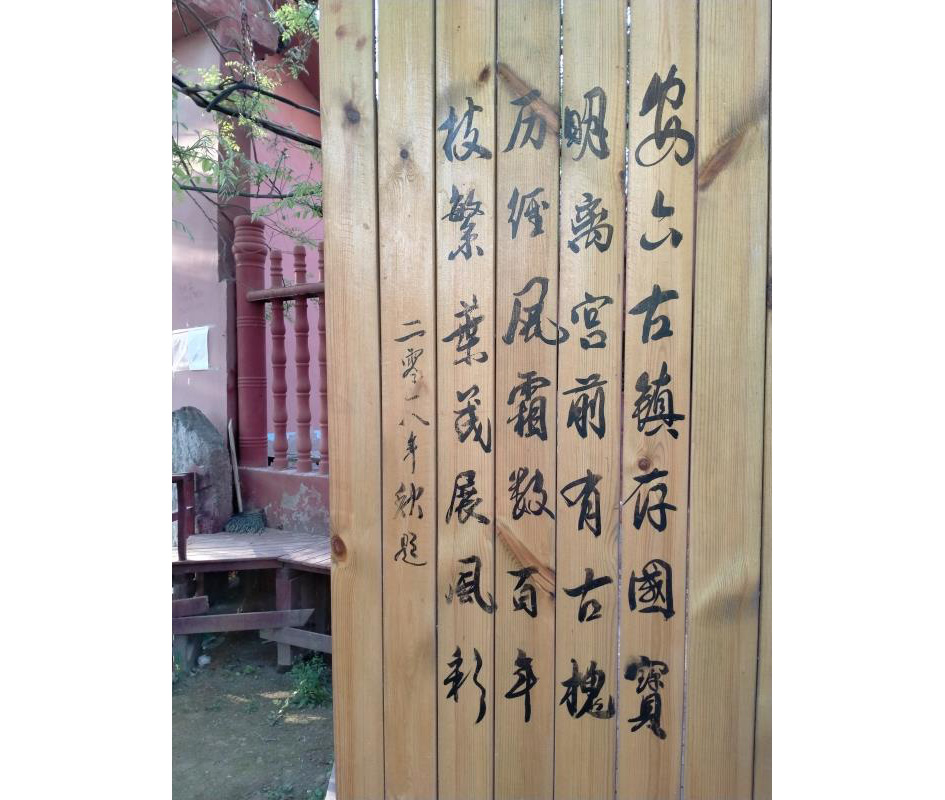 安六古镇存國寶
明离宫前有古槐
历经风霜数百年
枝繁葉茂展風彩
二零一八年秋题